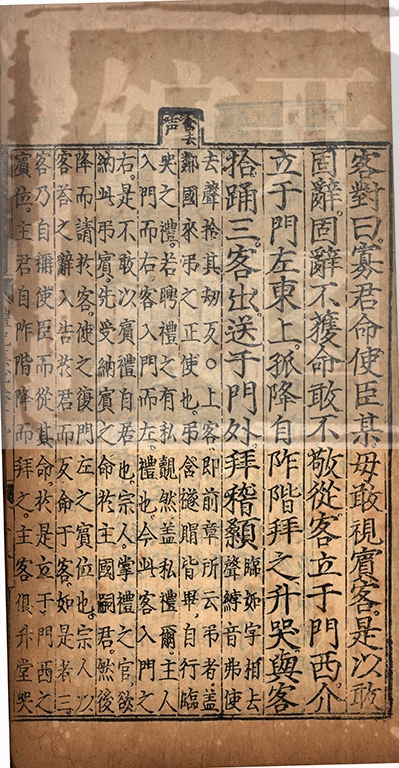 含去
聲
客對曰寡君命使臣某毋敢視賓客是以敢
固辭固辭不獲命敢不敬從客立于門西介
立于門左東上孤降自阼階拜之升哭與客
拾踊三客出送于門外拜稽顙臨如字相去
聲綍音弗使
去聲拾其劫反○上客即前章所云弔者蓋
鄰國來弔之正使也弔含襚賵皆畢自行臨
哭之禮若聘禮之有私覿然蓋私禮爾主人
入門而右客入門而左禮也今此客入門之
右是不敢以賓禮自居也宗人掌禮之官欲
納此弔賓先受納賓之命於主國嗣君然後
降而請於客使之復門左之賓位也宗人以
客荅之辭入告於君而反命于客如是者三
客乃自稱使臣而從其命於是立于門西之
賓位主君自阼階降而拜之主客俱升堂哭